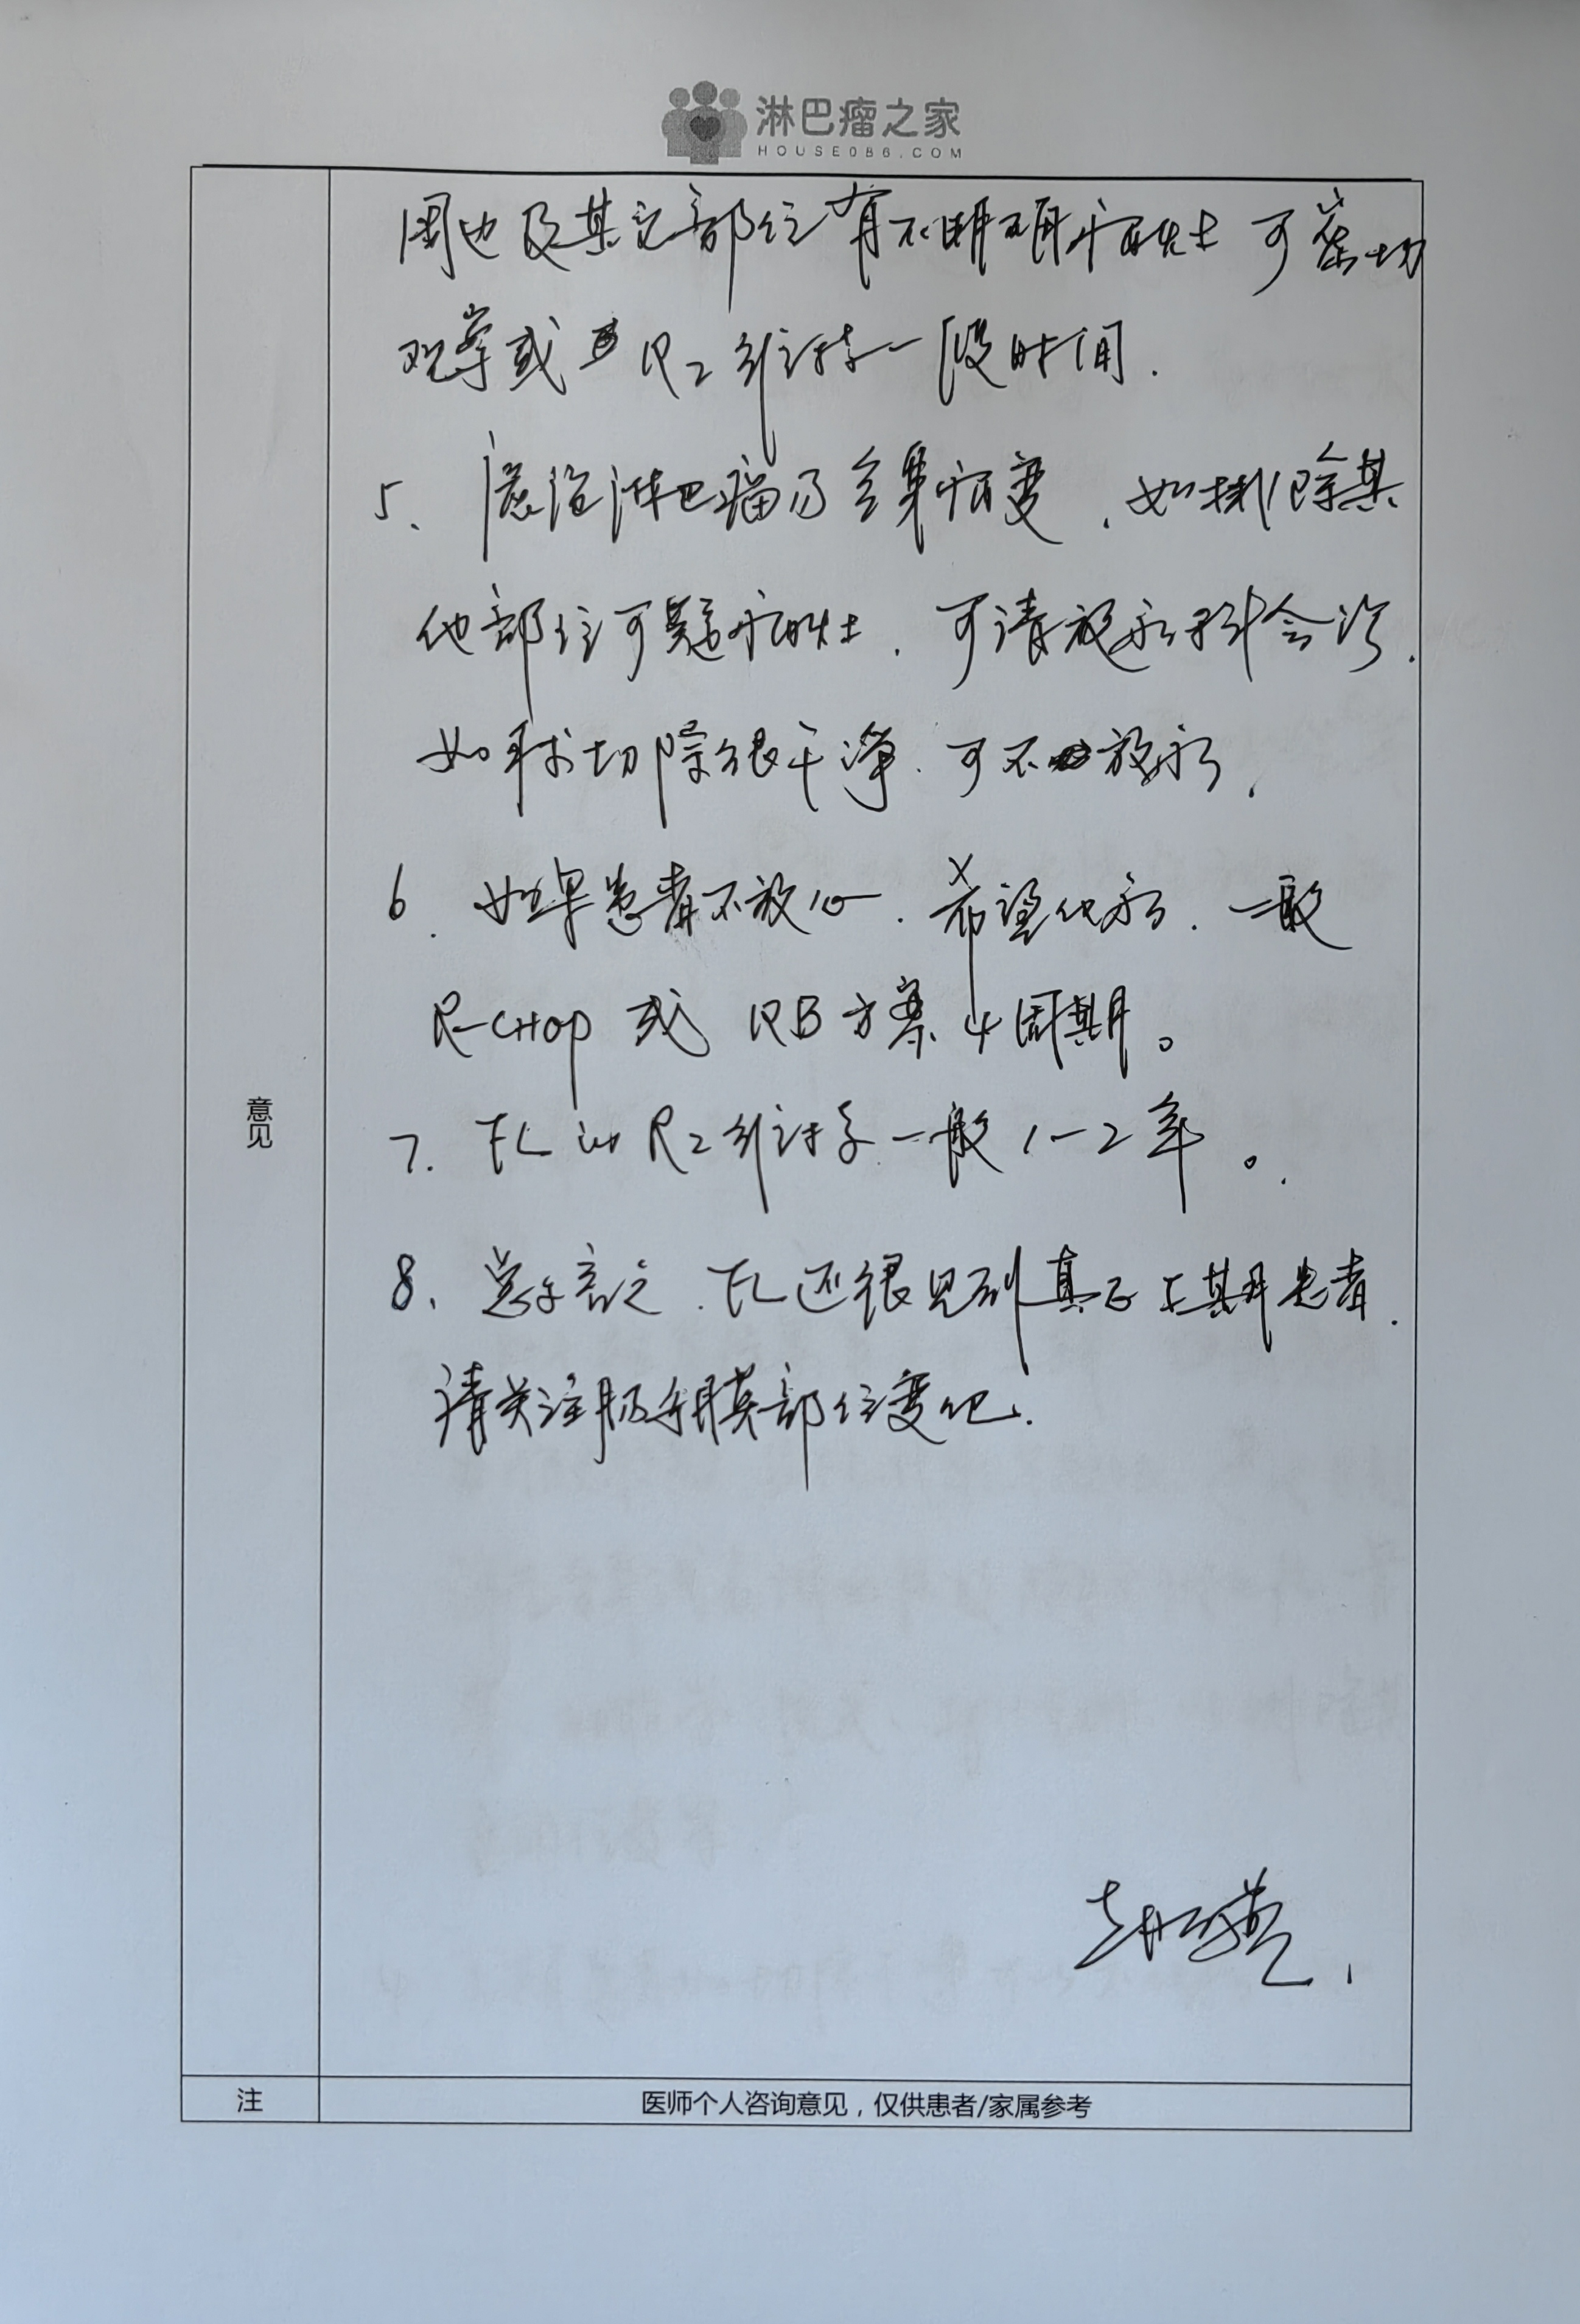 淋巴瘤之家
HOUSE086.COM
周边及其它部位有不明确病灶 可密切
观察或 R2维持一段时间.
5、滤泡淋巴瘤乃全身病变,如排除其
他部位可疑病灶,可请放疗科会诊.
如手术切除很干净、可不放疗.
6.如果患者不放心.希望化疗.一般
R-CHOP 或 RB方案4周期。
7.FL的R2维持一般1-2年。
8、总而言之.FL还很见到真正I期患者.
请关注肠系膜部位变化.
意见
注
医师个人咨询意见，仅供患者/家属参考